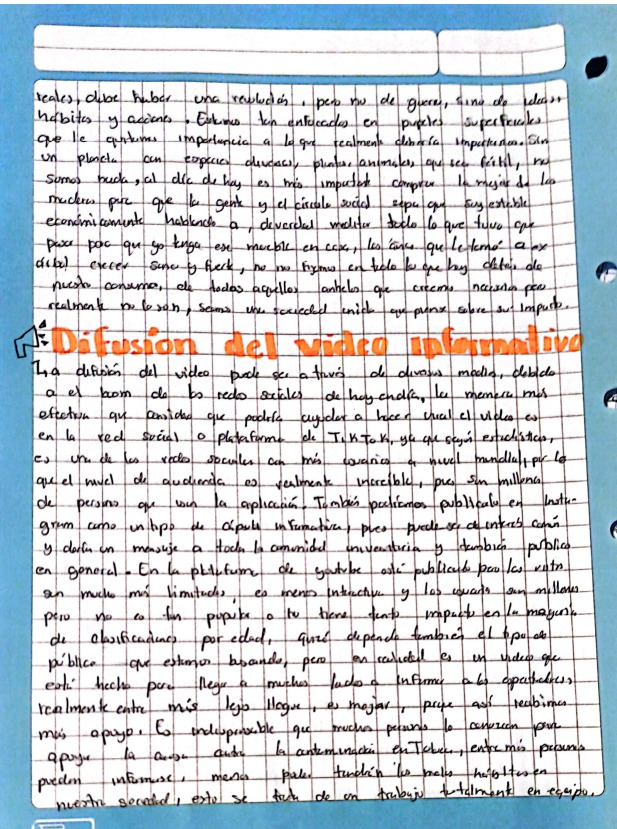 reales, debe haber una revolución, pero no de guerra, sino de ideas,
hábitos y acciones. Estamos tan enfocados en papeles superficiales
que le quitamos importancia a lo que realmente debería importarnos. Sin
un planeta con espacios diversos, plantas, animales, que sea fértil, no
somos nada, al día de hoy es más importante comprar la mejor de las
maderas para que la gente y el círculo social sepa que soy estable
económicamente hablando a, de verdad meditar todo lo que tuvo que
pasar para que yo tenga ese mueble en casa, los años que le tomó a ese
árbol crecer sano y fuerte, no nos fijamos en todo lo que hay detrás de
nuestro consumo, de todos aquellos anhelos que creemos necesarios pero
realmente no lo son, seamos una sociedad unida que piense sobre su impacto.
Difusión del video informativo
La difusión del video puede ser a través de diversos medios, debido
a el boom de las redes sociales de hoy en día, la manera más
efectiva que considero que podría ayudar a hacer viral el video es
en la red social o plataforma de TikTok, ya que según estadísticas,
es una de las redes sociales con más usuarios a nivel mundial, por lo
que el nivel de audiencia es realmente increíble, pues son millones
de personas que usan la aplicación. También podríamos publicarlo en Insta-
gram como un tipo de cápsula informativa, pues puede ser de interés común
y daría un mensaje a toda la comunidad universitaria y también público
en general. En la plataforma de youtube está publicado pero las vistas
son mucho más limitadas, es menos interactiva y los usuarios son millones
pero no es tan popular o no tiene tanto impacto en la mayoría
de clasificaciones por edad, quizá depende también el tipo de
público que estamos buscando, pero en realidad es un video que
está hecho para llegar a muchos lados e informar a los espectadores,
realmente entre más lejos llegue, es mejor, porque así recibimos
más apoyo. Es indispensable que muchas personas lo conozcan para
apoyar la causa contra la contaminación en Toluca, entre más personas
puedan informarse, menos tendrán los malos hábitos en
nuestra sociedad, esto se trata de un trabajo totalmente en equipo.